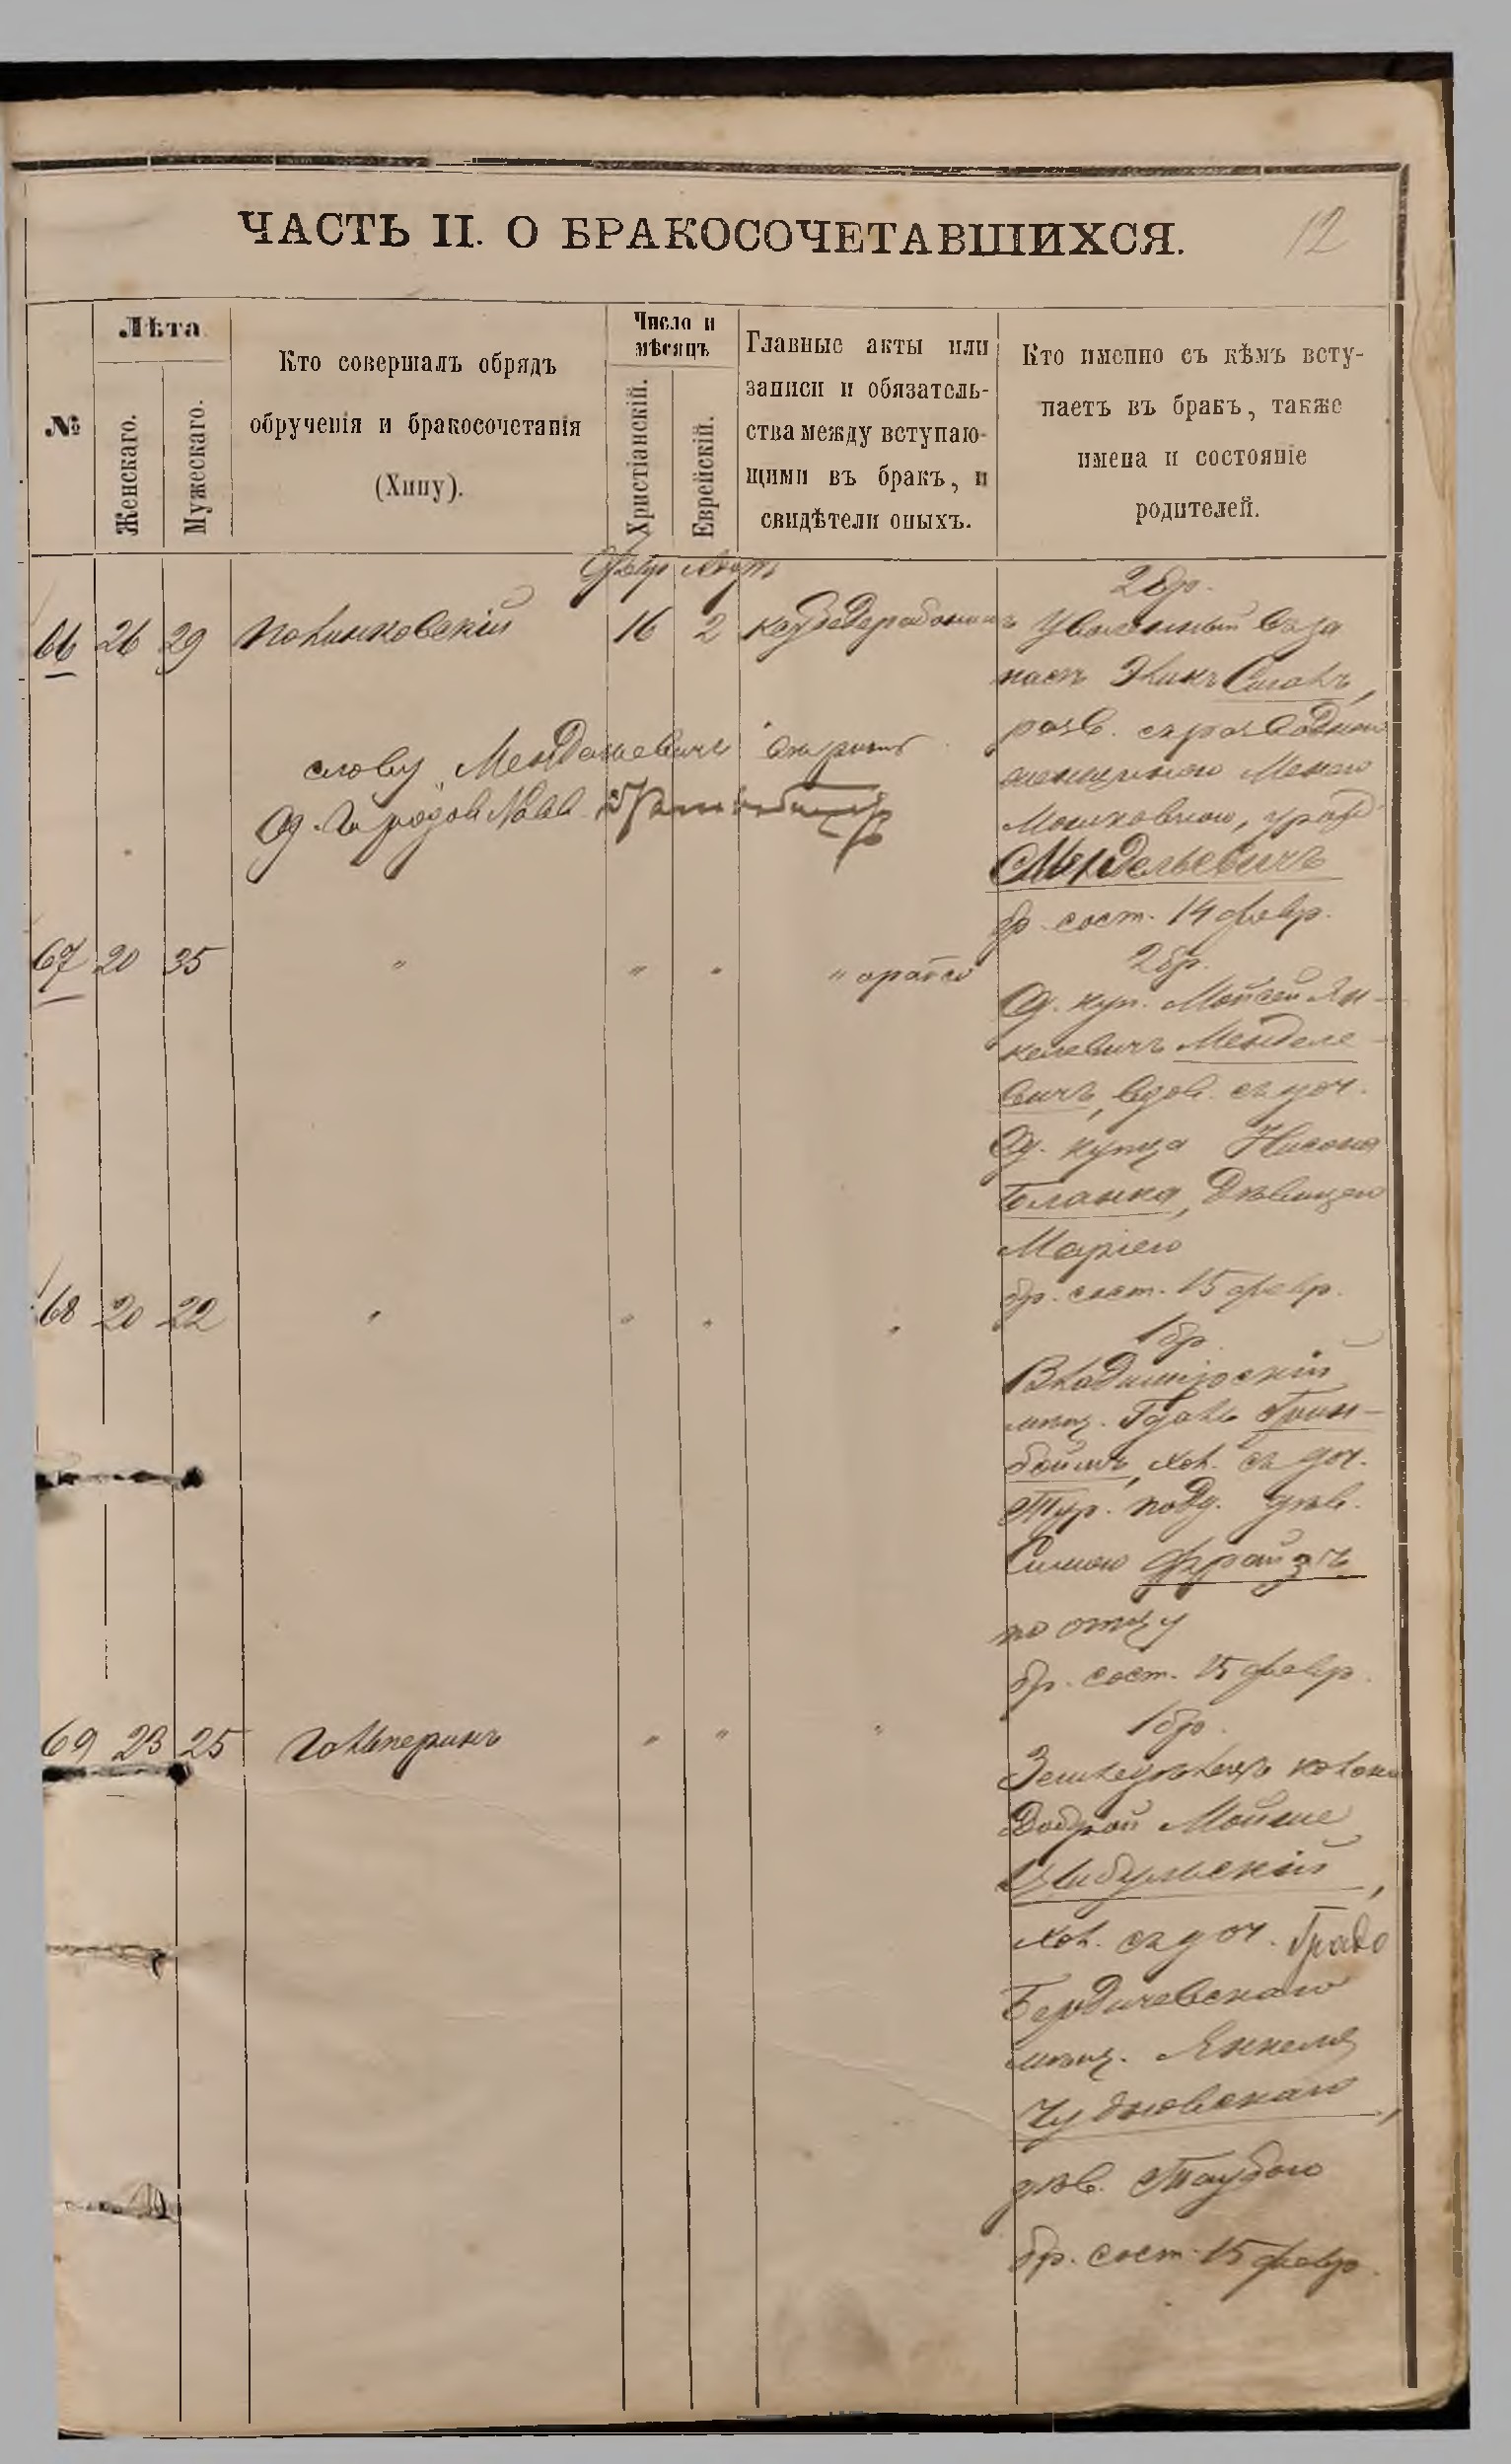 ЧАСТЬ II. О БРАКОСОЧЕТАВШИХСЯ.
12
№
Лѣта
Женскаго.
Мужескаго.
Кто совершалъ обрядъ
обрученія и бракосочетанія
(Хипу).
Число и
мѣсяцъ
Христіанскій.
Еврейскій.
Главные акты или
записи и обязатель-
ства между вступаю-
щими въ бракъ, и
свидѣтели оныхъ.
Кто именно съ кѣмъ всту-
паетъ въ бракъ, также
имена и состояніе
родителей.
66 26 29 Полинковскій 16 2
2 бр.
Уволенный въ за
пасъ
разв. съ разводною
женщиною
Мошковною, урожд
Мендельевичъ
бр. сост. 14 февр.
слову Менделевичъ
Од. Городов.
67 20 35 " " " "
2 бр.
Од. куп. Мойсей Ян-
келевичъ Менделе-
вичъ, вдов. съ доч.
Од. купца Нисона
Бланка, дѣвицею
Маріею
бр. сост. 15 февр.
68 20 22 " " " "
1 бр.
Владимірскій
мѣщ. Грин-
боймъ, хол. съ доч.
дѣв.
Симою
по отцу
бр. сост. 15 февр.
69 23 25 Гальперинъ " " "
1 бр.
Земледѣлецъ колоніи
Доброй Мойше
Цибульскій,
хол. съ доч.
Бердичевскаго
мѣщ. Янкеля
Чудновскаго,
дѣв. Таубою
бр. сост. 15 февр.